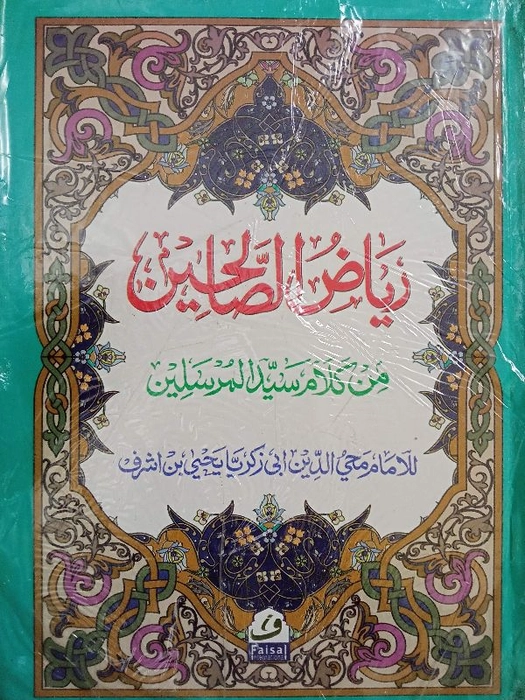 رياض الصالحين
من كلام سيد المرسلين
للامام محي الدين ابى زكريا يحيى بن اشرف
ف
Faisal
International